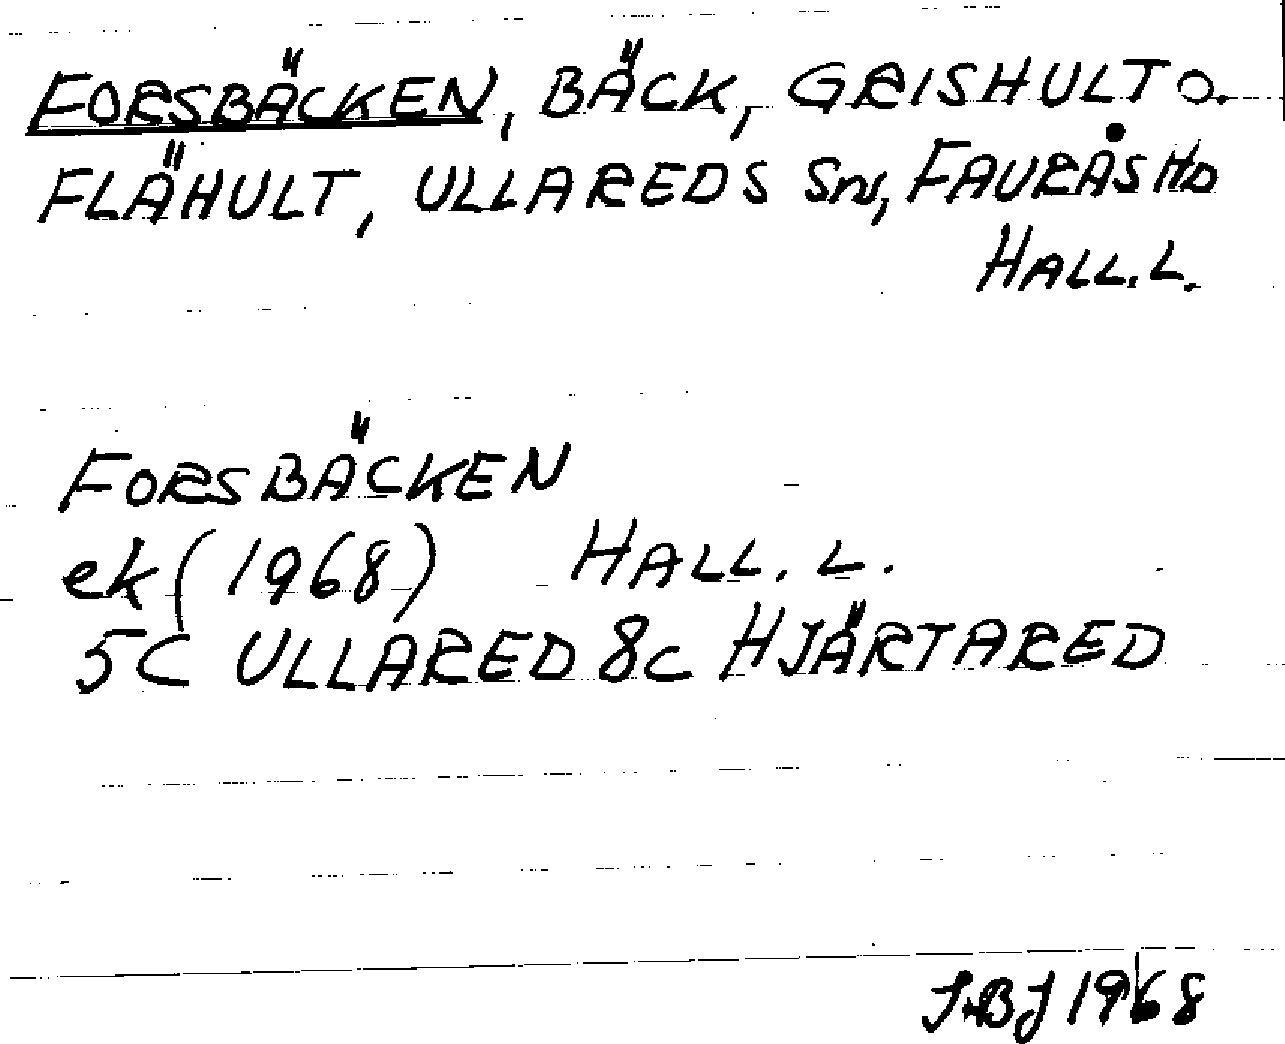 FORSBÄCKEN, BÄCK, GRISHULT O.
FLÄHULT, ULLAREDS Sn, FAURÅS HD
HALL.L.
FORSBÄCKEN
ek (1968) HALL. L.
5C ULLARED 8C HJÄRTARED
J.BJ 1968